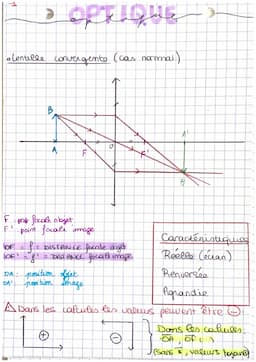 OPTIQUE
• Lentille convergente (cas normal)
B
A'
F
O
F'
A
B'
F : point focale objet
F' : point focale image
OF = f = DISTANCE focale objet
OF' = f' = DISTANCE focale image
OA : position objet
OA' : position image
Caractéristiques
Réelle (écran)
Renversée
Agrandie
⚠ Dans les calculs les valeurs peuvent être ⊖
⊕
⊖
Dans les calculs:
OA, OF